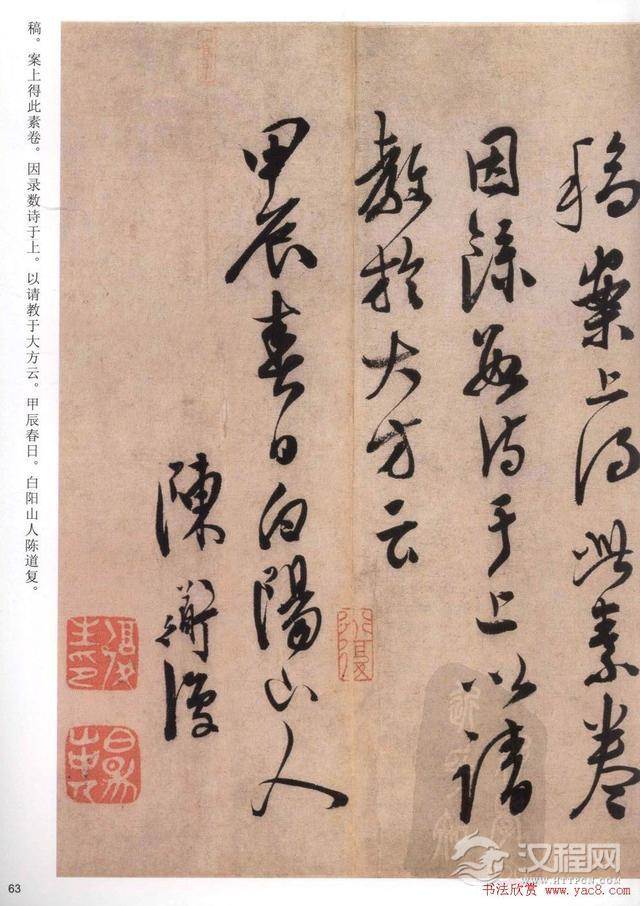 稿案上得此素卷
因录数诗于上以请
教於大方云
甲辰春日白陽山人
陳道復
稿。案上得此素卷。因录数诗于上。以请教于大方云。甲辰春日。白阳山人陈道复。
63
汉程网
WWW.HTTPCN.COM
书法欣赏 www.yac8.com